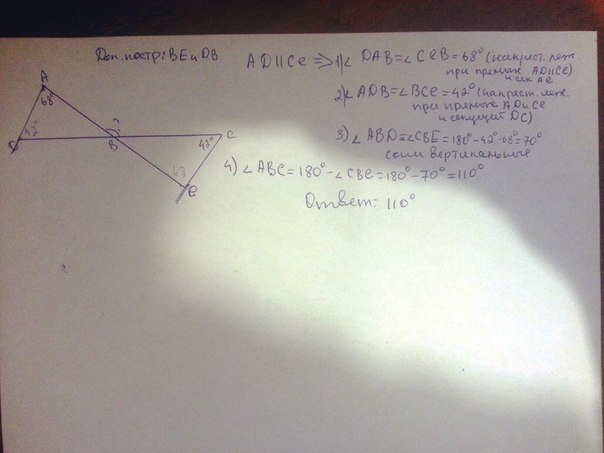 Доп. постр: BE и DB
AD||Ce => 1) ∠ DAB = ∠ CeB = 68° (накрест. леж.
при прямых AD||Ce)
и сек Ae
2) ∠ ADB = ∠ BCe = 42° (накрест. леж.
при прямых AD и Ce
и секущей DC)
3) ∠ ABD = ∠ CBE = 180° - 42° - 68° = 70°
вертикальные
4) ∠ ABC = 180° - ∠ CBe = 180° - 70° = 110°
Ответ: 110°
A
68°
D
?
B
C
42°
68
E